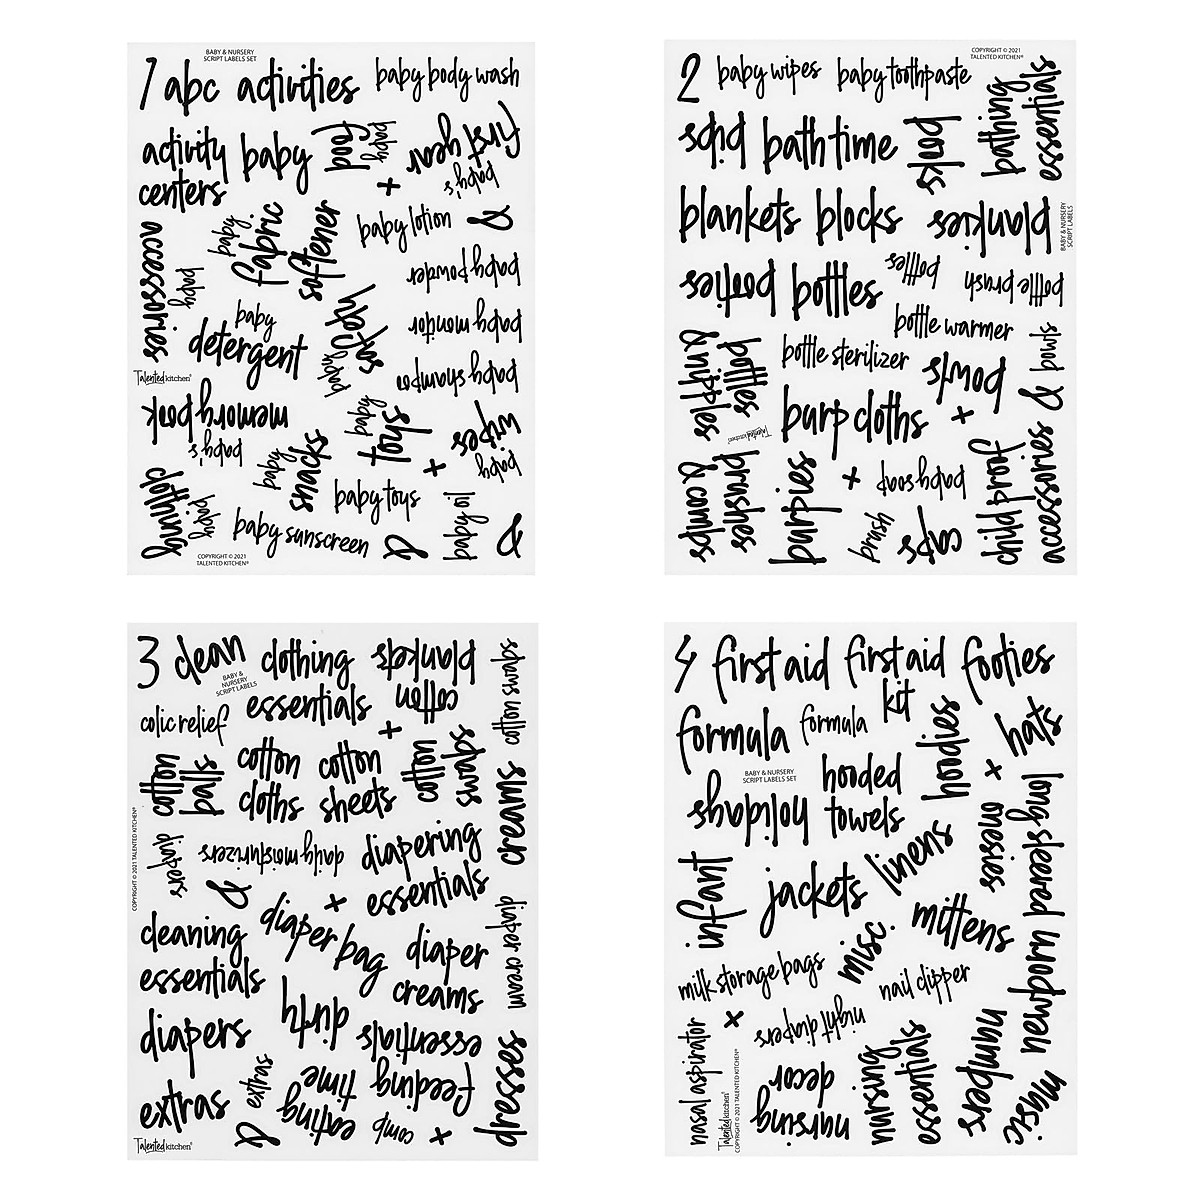 BABY & NURSERY
SCRIPT LABELS SET
1 abc activities
baby body wash
activity
centers
baby
baby
food
baby's
first year
+
accessories
baby
fabric
softener
baby lotion
&
baby
baby powder
baby
detergent
baby
safety
baby monitor
baby shampoo
Talented kitchen®
baby's
memory book
baby
snacks
baby
toys
+
baby
wipes
baby
clothing
baby toys
baby sunscreen
&
baby oil
&
COPYRIGHT © 2021
TALENTED KITCHEN®
COPYRIGHT © 2021
TALENTED KITCHEN®
2
baby wipes
baby toothpaste
bibs
bath time
books
bathing
essentials
blankets
blocks
blankies
BABY & NURSERY
SCRIPT LABELS
booties
bottles
bottles
bottle brush
bottle warmer
bottles
& nipples
bottle sterilizer
bowls
& bowls
burp cloths
+
Talented kitchen®
brushes
& combs
burpies
+
baby soap
brush
caps
child proof
accessories
3
clean
clothing
essentials
cotton
blankets
cotton swabs
BABY &
NURSERY
SCRIPT LABELS
colic relief
+
cotton
balls
cotton
cloths
cotton
sheets
cotton
swabs
creams
COPYRIGHT © 2021 TALENTED KITCHEN®
diapers
daily moisturizers
diapering
essentials
&
+
cleaning
essentials
diaper bag
diaper
creams
diaper cream
diapers
dirty
essentials
extras
extras
eating
time
feeding
dresses
&
comb
+
Talented kitchen®
4
first aid
first aid
kit
footies
formula
formula
hoodies
hats
BABY & NURSERY
SCRIPT LABELS SET
hooded
towels
+
holidays
long sleeved
onesies
linens
infant
jackets
mittens
misc.
newborn
milk storage bags
nail clipper
+
night diapers
nasal aspirator
numbers
nursing
essentials
nursing
decor
music
Talented kitchen®
COPYRIGHT © 2021 TALENTED KITCHEN®